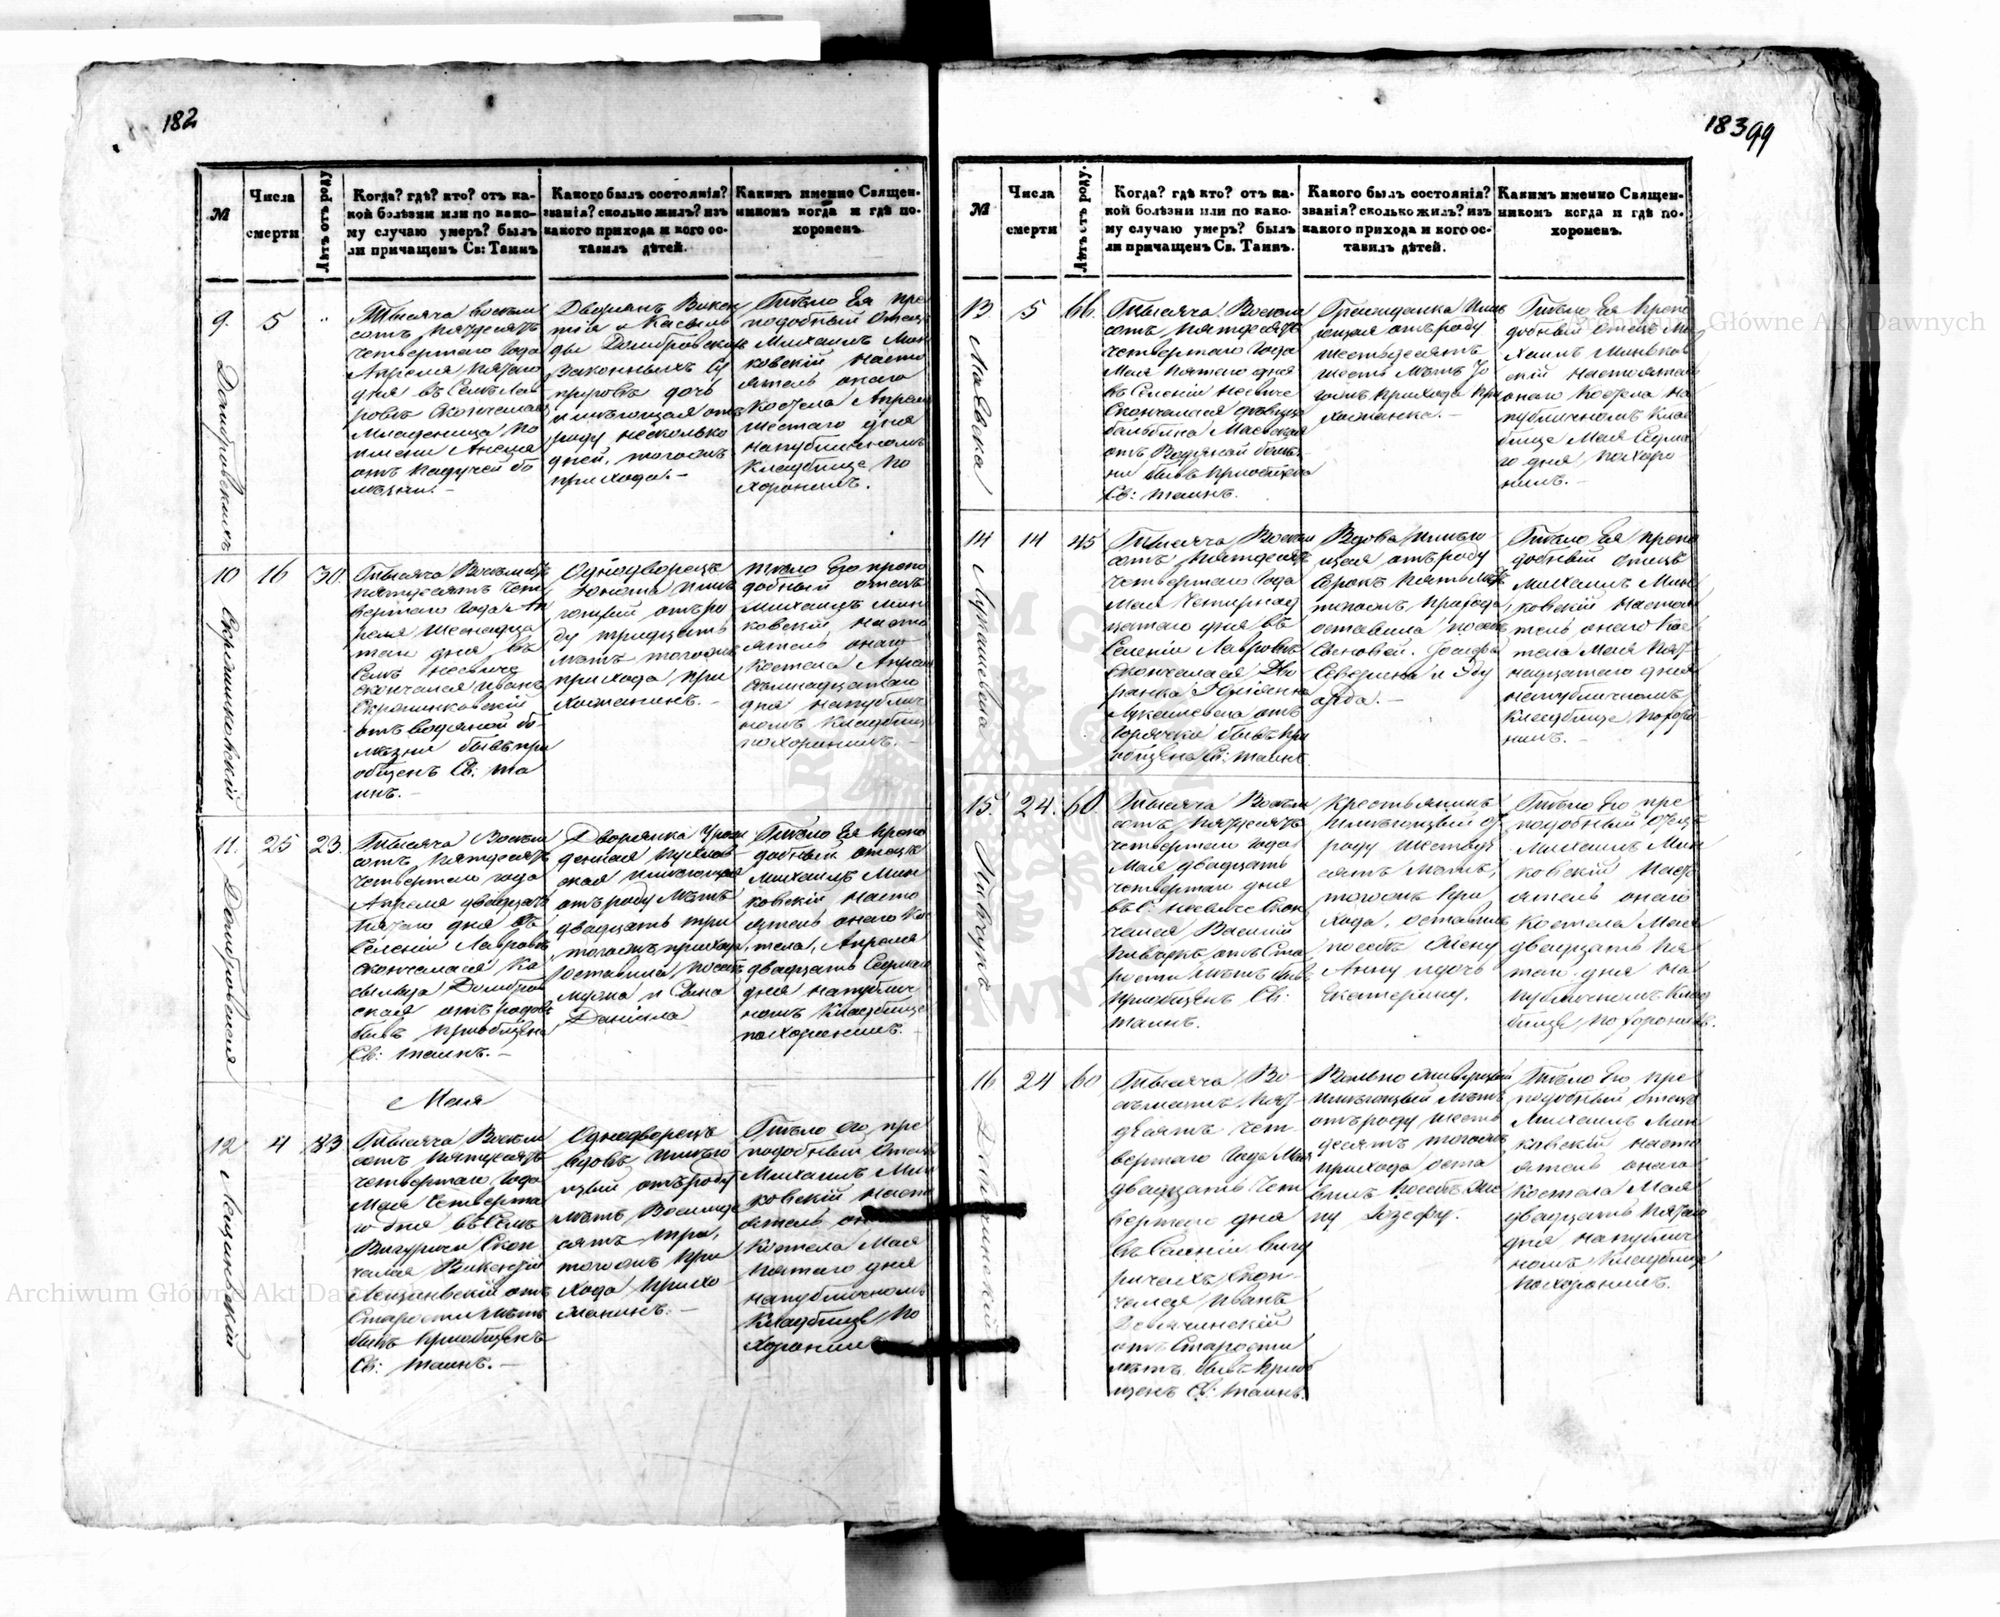 182
№
Числа
смерти
Лѣтъ отъ роду
Когда? гдѣ? кто? отъ ка-
кой болѣзни или по како-
му случаю умеръ? былъ
ли причащенъ Св: Таинъ
Какого былъ состоянія?
званія? сколько жилъ? изъ
какого прихода и кого ос-
тавилъ дѣтей.
Какимъ именно Священ-
никомъ когда и гдѣ по-
хороненъ.
9.
5
Тысяча восемь
сотъ пятдесятъ
четвертаго года
Апреля пятаго
дня въ Селѣ Лав
ровѣ скончалась
Младеница по
имени
отъ падучей бо
лѣзни. –
Дворянъ Викен
тія и Касыль
ды Домбровскихъ
законныхъ су
пруговъ дочь
имѣющая отъ
роду несколько
дней, тогожъ
прихода. –
Тѣло Ея пре
подобный Отецъ
Михаилъ Мин
ковскій насто
ятель онаго
Костела Апреля
шестаго дня
на публичномъ
Кладбище по
хоронилъ.
10
16
30.
Скромниковскій
Тысяча Восемьсотъ
пятдесятъ чет
вертаго года Ап
реля шеснадца
таго дня въ
Селѣ Несвиче
скончался Иванъ
отъ водяной бо-
лѣзни бывъ при
общенъ Св: та
инъ. –
Однодворецъ
Юноша имѣ
ющій отъ ро
ду тридцать
лѣтъ тогожъ
прихода при
хожанинъ. –
Тѣло Его препо
добный отецъ
Михаилъ Мин
ковскій насто
ятель онаго
Костела Апреля
дня на публич
номъ Кладбищ
похоронилъ. –
11.
25
23.
Домбровская
Тысяча Восемь
сотъ пятдесятъ
четвертаго года
Апреля двадцать
пятаго дня въ
Селеніи Лавровѣ
скончалася Ка
сыльда Домбров
ская отъ родовъ
бывъ приобщена
Св: таинъ. –
Дворянка урож
денная
ская имѣющая
отъ роду лѣтъ
двадцать три
тогожъ приход
оставила по себѣ
мужа и Сына
Даніила
Тѣло Ея препо
добный отецъ
Михаилъ Мин
ковскій насто
ятель онаго Ко
стела, Апреля
двадцать седмаго
дня на публич
номъ Кладбище
похоронилъ. –
Мая
12
4
83
Лещинскій
Тысяча Восемь
сотъ пятдесятъ
четвертаго года
Мая четверта
го дня въ Селѣ
Вигуричи Скон
чался Викентій
Лещинскій отъ
Старости лѣтъ
бывъ приобщенъ
Св: таинъ. –
Однодворецъ
вдовъ имѣю
щій отъ роду
лѣтъ Восемде
сятъ три,
тогожъ при
хода прихо
жанинъ. –
Тѣло Его пре
подобный Отецъ
Михаилъ Мин
ковскій насто
ятель онаго
Костела Мая
пятаго дня
на публичномъ
Кладбище по
хоронилъ
183 99
№
Числа
смерти
Лѣтъ отъ роду.
Когда? гдѣ кто? отъ ка-
кой болѣзни или по како-
му случаю умеръ? былъ
ли причащенъ Св. Таинъ.
Какого былъ состоянія?
званія? сколько жилъ? изъ
какого прихода и кого ос-
тавилъ дѣтей.
Какимъ именно Священ-
никомъ когда и гдѣ по-
хороненъ.
13
5
66.
Маевска
Тысяча Восемь
сотъ пятдесятъ
четвертаго года
Мая пятаго дня
въ Селеніи Несвиче
Скончалася дѣвица
Бальбина Маевская
отъ Водяной болѣз
ни бывъ приобщена
Св: таинъ.
Гражданка имѣ
ющая отъ роду
шестьдесятъ
шесть лѣтъ то
гожъ прихода при
хожанка. –
Тѣло Ея препо
добный отецъ Ми
хаилъ Минков
скій настоятель
онаго Костела на
публичномъ Клад
бище Мая Седма
го дня похоро
нилъ. –
14
14
45
Лукашевича
Тысяча Восемь
сотъ пятдесятъ
четвертаго года
Мая Четырнад
цатаго дня въ
Селеніи Лавровѣ
скончалася Дво
рянка
отъ
горячки бывъ при
общена Св: таинъ
Вдова имѣю
щая отъ роду
сорокъ пять лѣтъ
тогожъ прихода
оставила по себѣ
Сыновей. Іосифа
Северина и Эду
арда. –
Тѣло Ея препо
добный отецъ
Михаилъ Мин
ковскій настоя
тель онаго Кос
тела Мая пят
надцатаго дня
на публичномъ
Кладбище похоро
нилъ. –
15.
24.
60.
Пивчукъ
Тысяча Восемь
сотъ пятдесятъ
четвертаго года
Мая двадцать
четвертаго дня
въ С: Несвиче Скон
чался Василій
Пивчукъ отъ Ста
рости лѣтъ бывъ
приобщенъ Св:
таинъ.
Крестьянинъ
имѣющій от
роду шестьде
сятъ лѣтъ,
тогожъ при
хода, оставилъ
по себѣ жену
Анну и дочь
Екатерину.
Тѣло Его пре
подобный Отецъ
Михаилъ Мин
ковскій наст
оятель онаго
Костела Мая
двадцать пя
таго дня на
публичномъ Клад
бище похоронилъ.
16
24
60
Тысяча Во-
семьсотъ пят-
десятъ чет-
вертаго года Мая
двадцать чет
вертаго дня
въ Селеніи Вигу
ричахъ Скон-
чался Иванъ
отъ Старости
лѣтъ бывъ приоб
щенъ Св: таинъ.
имѣющій лѣтъ
отъ роду шесть
десятъ тогожъ
прихода оста
вилъ по себѣ же
ну Іозефу.
Тѣло Его пре
подобный отецъ
Михаилъ Мин
ковскій насто
ятель онаго
Костела Мая
двадцать пятаго
дня на публич
номъ Кладбище
похоронилъ.
Archiwum Główne Akt Dawnych